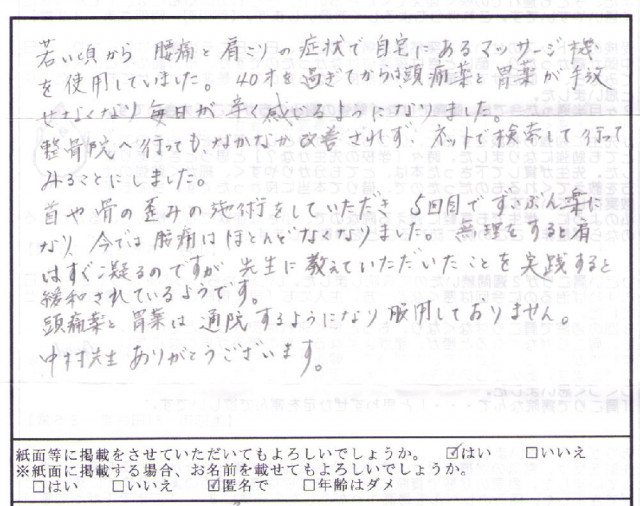 若い頃から 腰痛と肩こりの症状で自宅にあるマッサージ機
を使用していました。40才を過ぎてからは頭痛薬と胃薬が手放
せなくなり毎日が辛く感じるようになりました。
整骨院へ行っても、なかなか改善されず、ネットで検索して行って
みることにしました。
首や骨の歪みの施術をしていただき 5回目でずいぶん楽に
なり 今では腰痛はほとんどなくなりました。無理をすると肩
はすぐ凝るのですが 先生に教えていただいたことを実践すると
緩和されているようです。
頭痛薬と胃薬は通院するようになり服用しておりません。
中村先生ありがとうございます。
紙面等に掲載をさせていただいてもよろしいでしょうか。 ☑はい □いいえ
※紙面に掲載する場合、お名前を載せてもよろしいでしょうか。
□はい □いいえ ☑匿名で □年齢はダメ